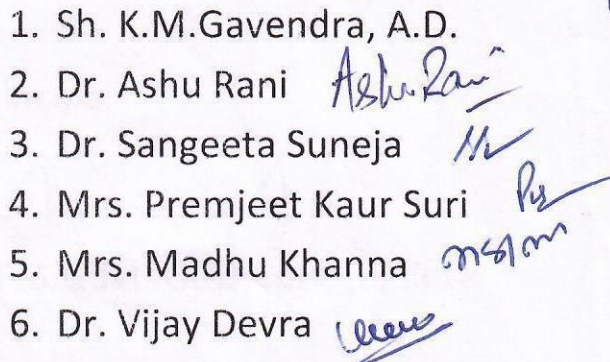 1. Sh. K.M.Gavendra, A.D.
2. Dr. Ashu Rani Ashu Rani
3. Dr. Sangeeta Suneja
4. Mrs. Premjeet Kaur Suri
5. Mrs. Madhu Khanna
6. Dr. Vijay Devra